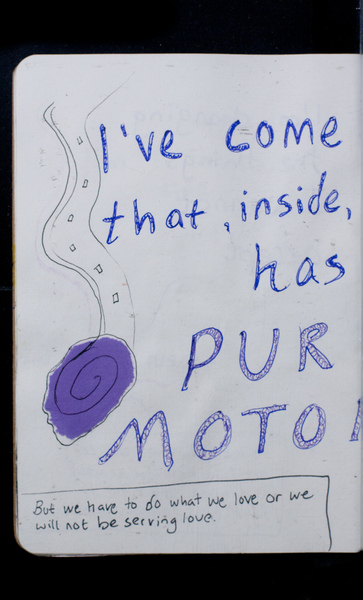 I've come
that, inside,
has
PUR
MOTO
But we have to do what we love or we
will not be serving love.